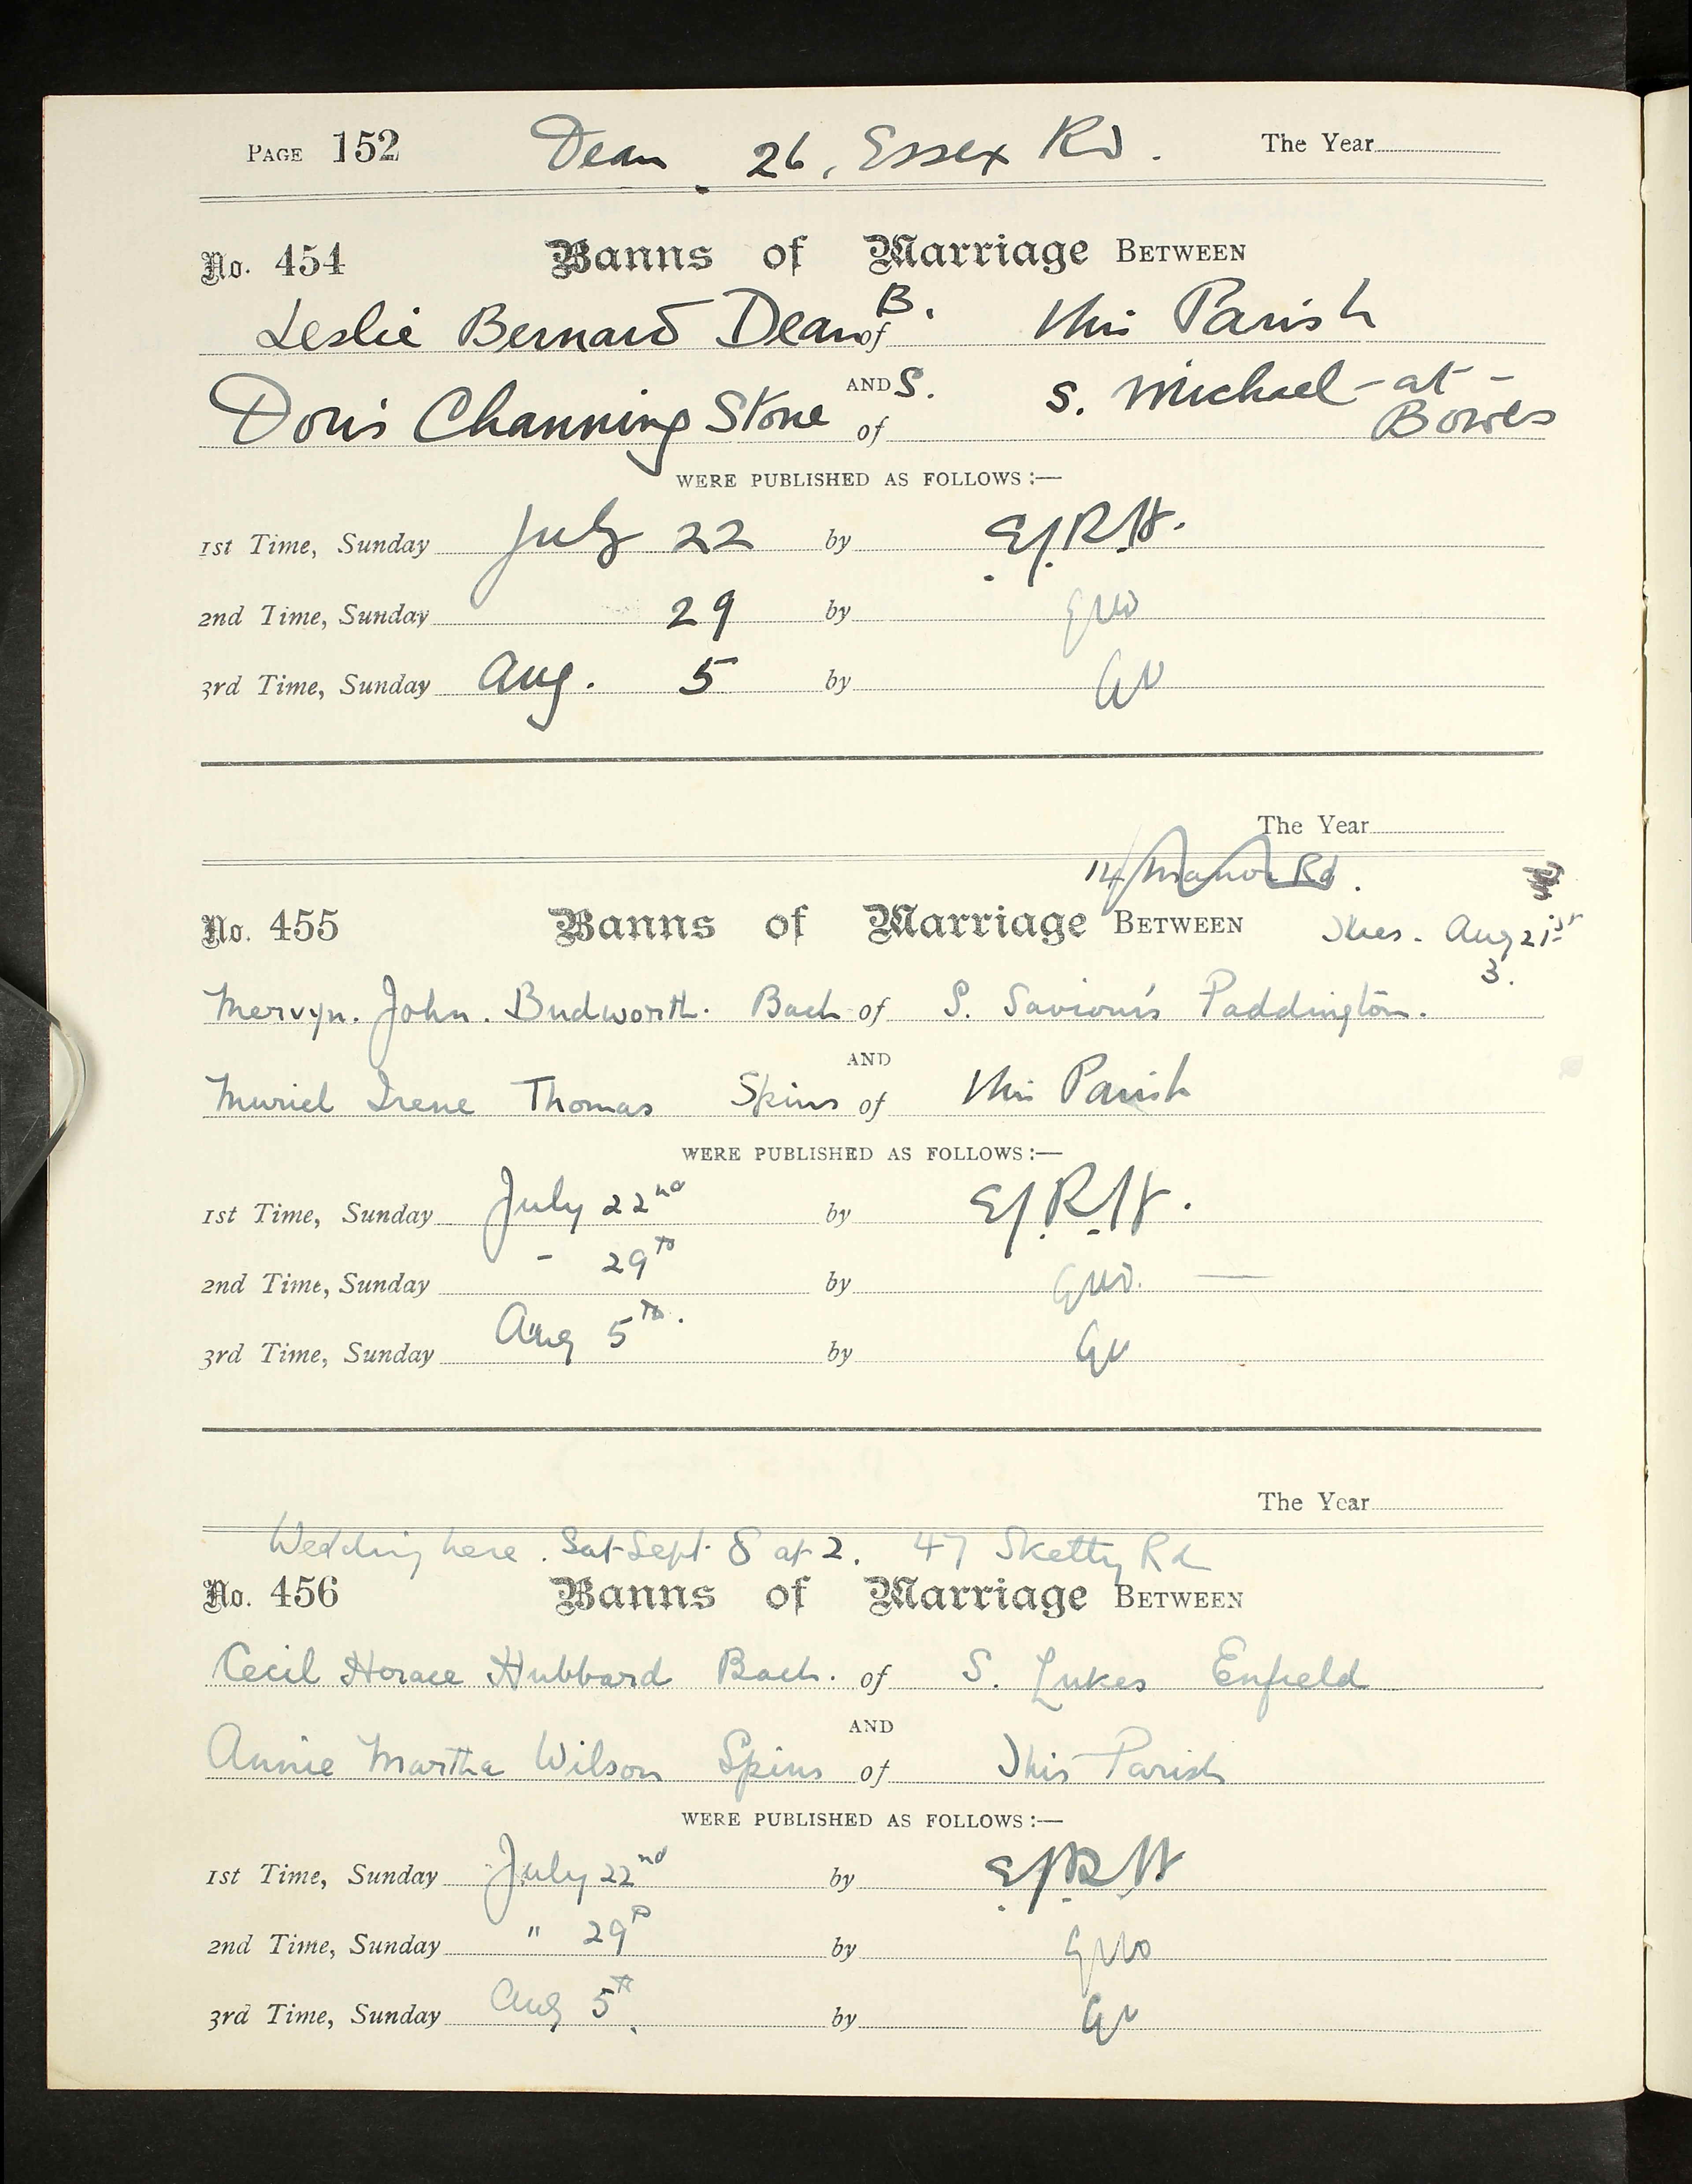 PAGE 152 Dean . 26, Essex Rd. The Year
No. 454 Banns of Marriage BETWEEN
Leslie Bernard Dean B. of this Parish
AND
Doris Channing Stone S. of S. Michael-at-Bowes
WERE PUBLISHED AS FOLLOWS :—
1st Time, Sunday July 22 by E.J.R.H.
2nd Time, Sunday 29 by
3rd Time, Sunday Aug. 5 by
The Year
14 Manor Rd.
No. 455 Banns of Marriage BETWEEN Tues. Aug 21st
3.
Mervyn. John. Budworth. Bach of S. Saviour's Paddington.
AND
Muriel Irene Thomas Spins of this Parish
WERE PUBLISHED AS FOLLOWS :—
1st Time, Sunday July 22nd by E.J.R.H.
2nd Time, Sunday - 29th by
3rd Time, Sunday Aug 5th. by
The Year
Wedding here. Sat Sept. 8 at 2. 47 Sketty Rd
No. 456 Banns of Marriage BETWEEN
Cecil Horace Hubbard Bach. of S. Lukes Enfield
AND
Annie Martha Wilson Spins of This Parish
WERE PUBLISHED AS FOLLOWS :—
1st Time, Sunday July 22nd by E.J.R.H
2nd Time, Sunday " 29th by
3rd Time, Sunday Aug 5th. by